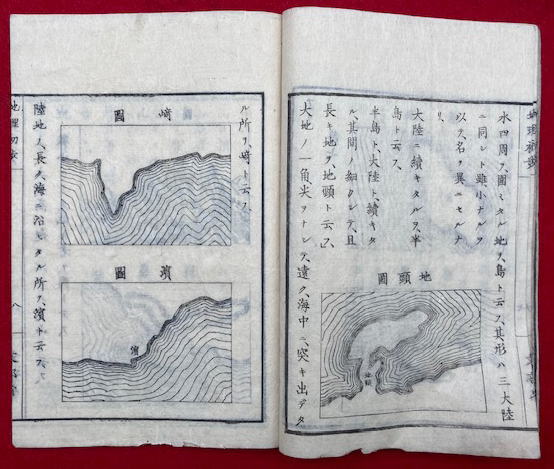 水四周ヲ圍ミタル地ヲ、島ト云フ、其形ハ三大陸
ニ同シト雖小ナルヲ
以テ、名ヲ異ニセルナ
リ、
大陸ニ續キタルヲ、半
島ト云フ、
半島ト、大陸ト、續キタ
ル、其間ノ細クシテ、且
長キ地ヲ、地頭ト云フ、
地頭圖
地頭
大地ノ一角尖ヲナシテ、遠ク、海中ニ、突キ出デタ
ル所ヲ、﨑ト云フ、
﨑圖
濱圖
濱
陸地ノ、長ク、海ニ沿ヒタル所ヲ、濱ト云フ、
地理初歩
八